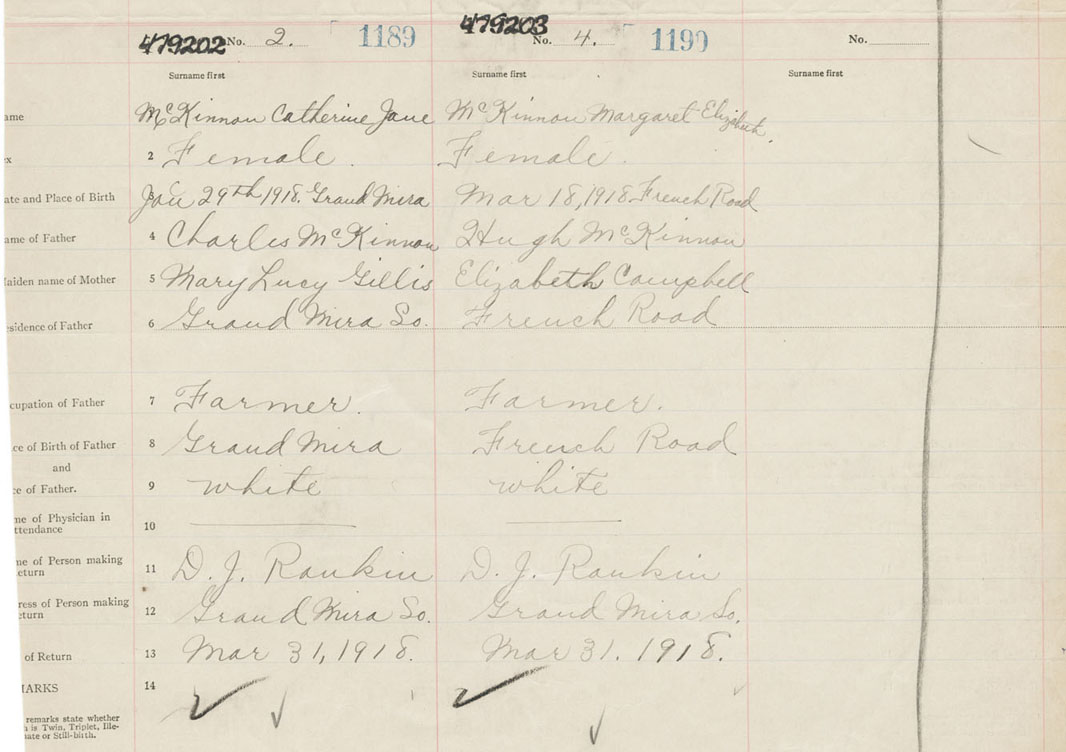 479202 No. 2. 1189 479203 No. 4. 1190 No.
Surname first Surname first Surname first
ame McKinnon Catherine Jane McKinnon Margaret Elizabeth.
ex 2 Female. Female.
ate and Place of Birth 3 Jan 29th, 1918. Grand Mira Mar 18, 1918. French Road
ame of Father 4 Charles McKinnon Hugh McKinnon
aiden name of Mother 5 Mary Lucy Gillis Elizabeth Campbell
esidence of Father 6 Grand Mira So. French Road
cupation of Father 7 Farmer. Farmer.
ce of Birth of Father 8 Grand Mira French Road
and
ce of Father. 9 White White
me of Physician in
ttendance 10
me of Person making
eturn 11 D. J. Rankin D. J. Rankin
ress of Person making
eturn 12 Grand Mira So. Grand Mira So.
of Return 13 Mar 31, 1918. Mar 31. 1918.
MARKS 14
remarks state whether
n is Twin, Triplet, Ille-
nate or Still-birth.